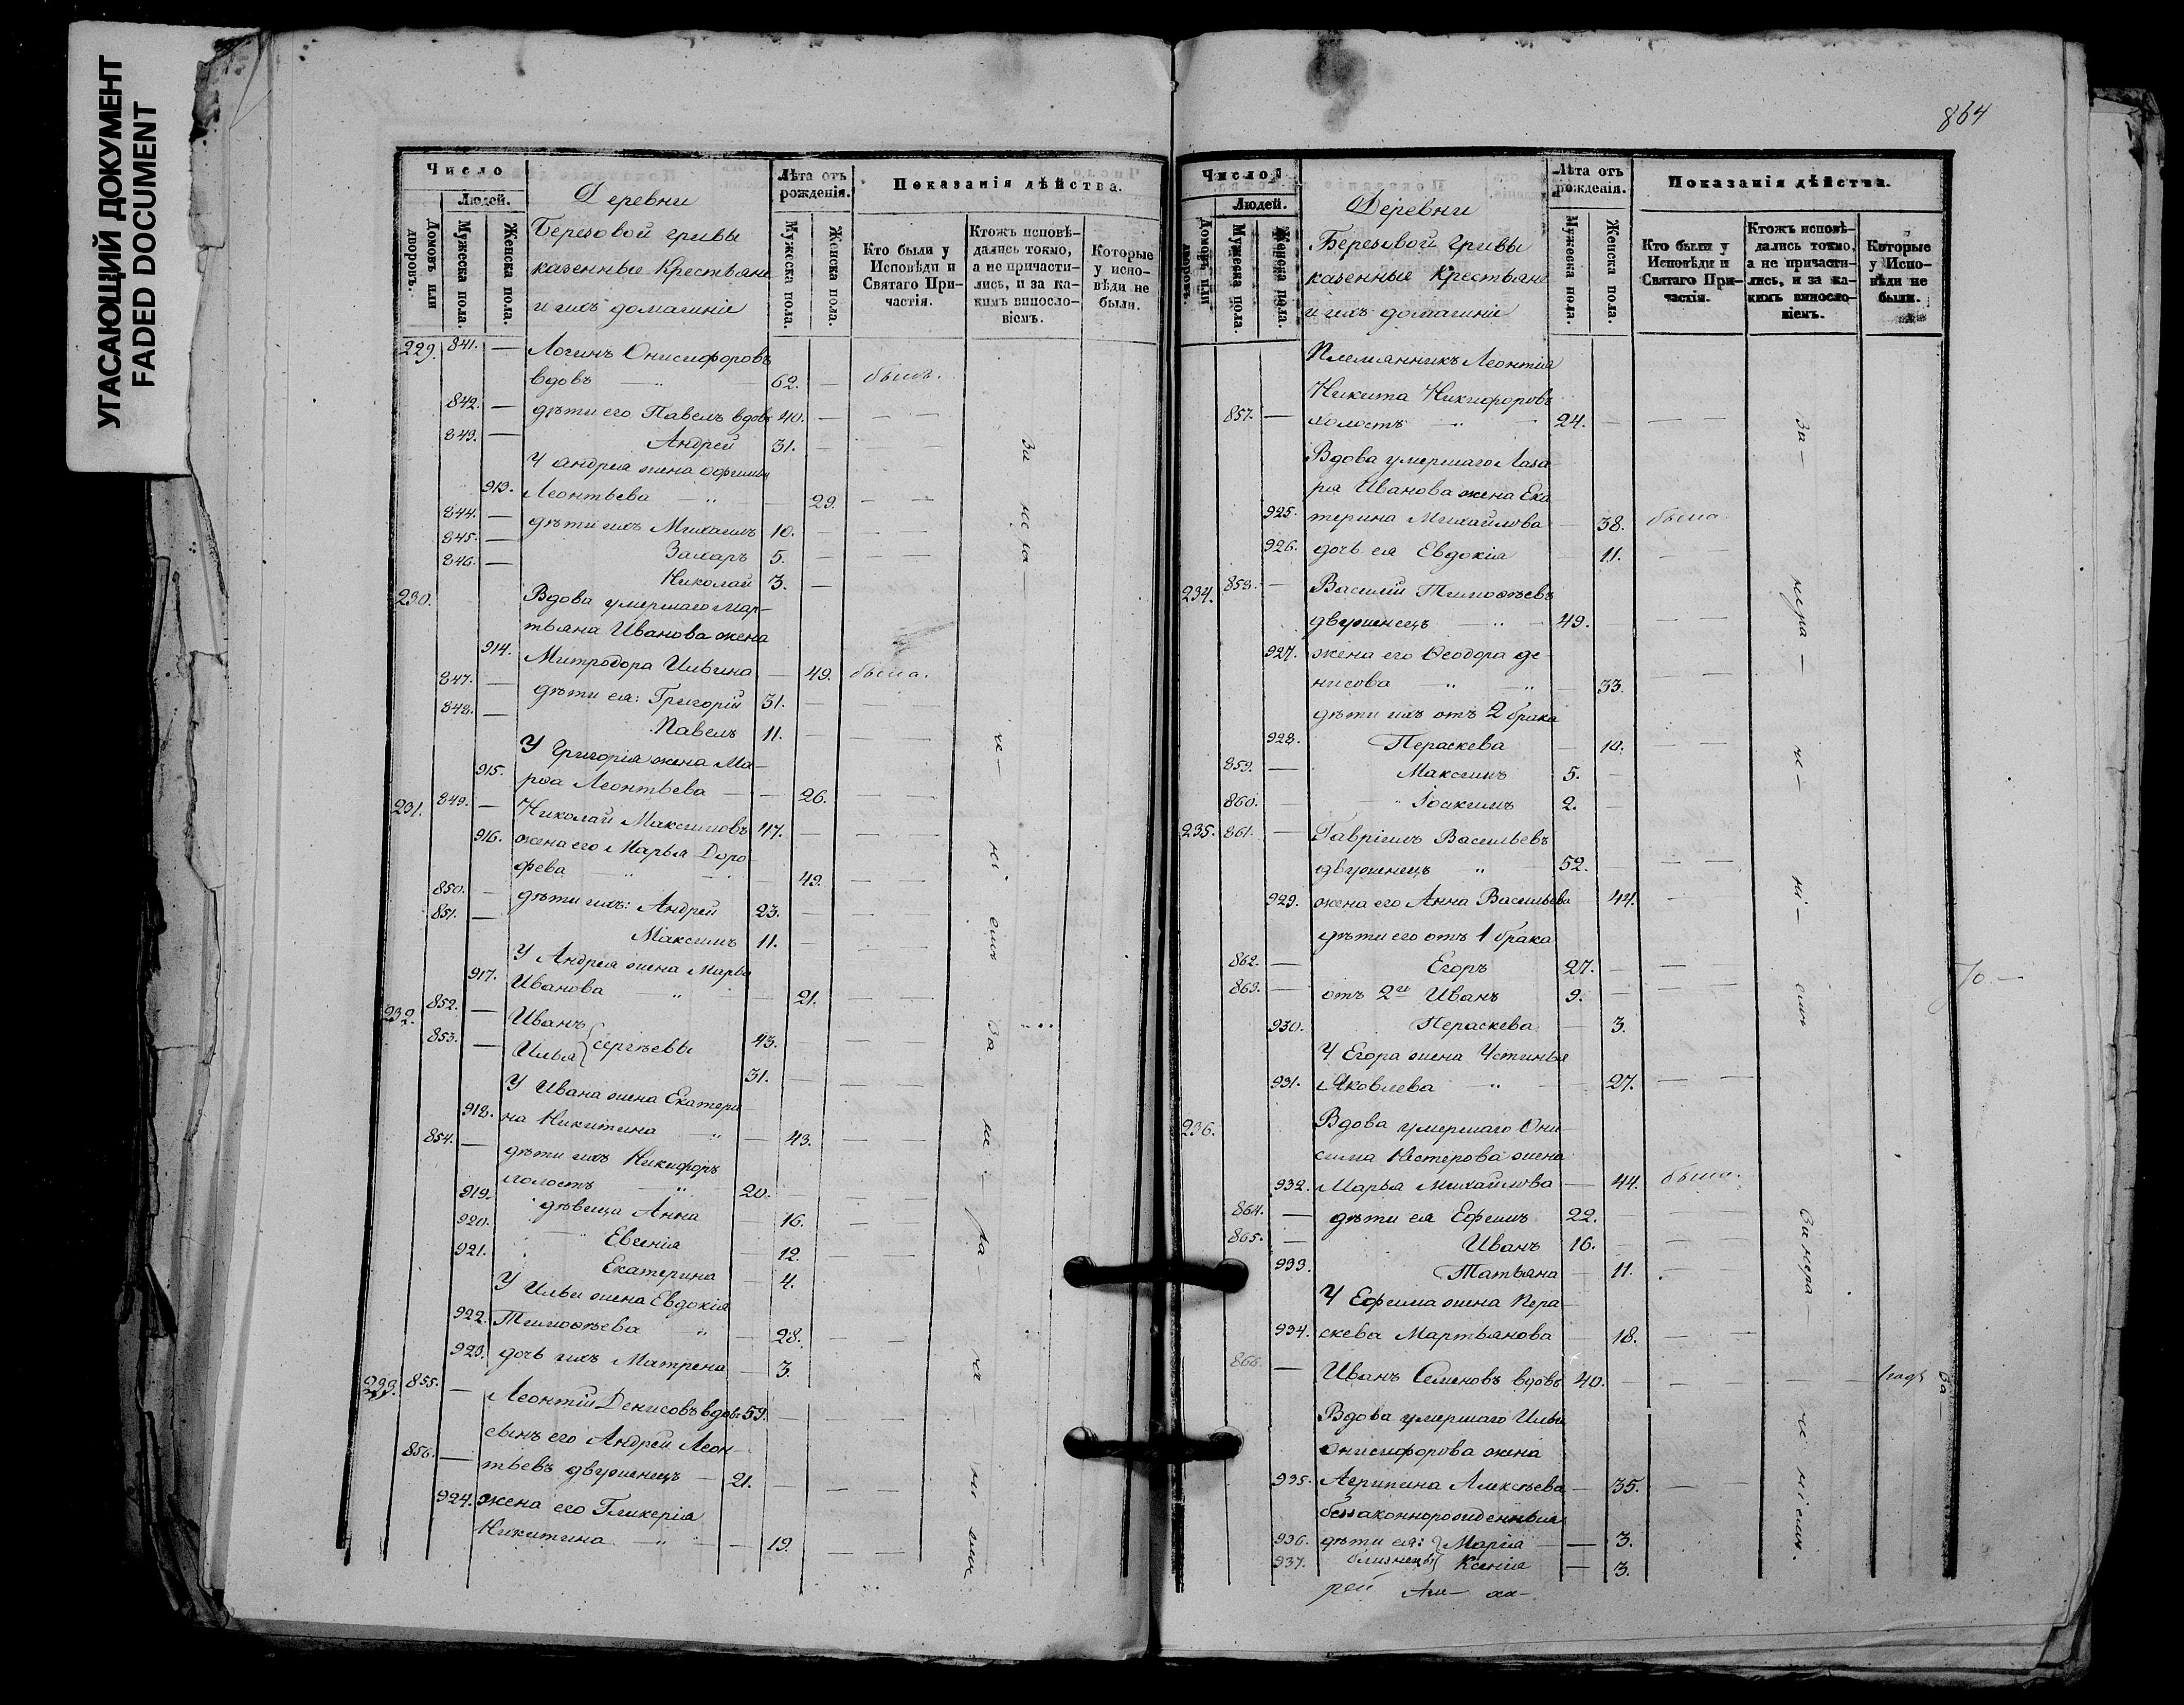 УГАСАЮЩИЙ ДОКУМЕНТ
FADED DOCUMENT
864
Число
Людей.
Домовъ или дворовъ.
Мужеска пола.
Женска пола.
Деревни
Березовой гривы
казенные крестьяне
и ихъ домашніе
Лѣта отъ рожденія.
Мужеска пола.
Женска пола.
Показанія дѣйства.
Кто были у Исповѣди и Святаго Причастія.
Ктожъ исповѣдались токмо, а не причастились, и за какимъ винословіемъ.
Которые у исповѣди не были.
229. 841. — Логинъ Онисифоровъ
вдовъ — 62. — былъ.
842. — дѣти его Павелъ вдовъ 40. —
843. — Андрей 31. —
У Андрея жена
913. Леонтьева — 29. — —
844. — дѣти ихъ Михаилъ 10. —
845. — Захаръ 5. —
846. — Николай 3. —
230. Вдова умершаго Мар-
тьяна Иванова жена
914. Митродора Ильина — 49. была.
847. — дѣти ея: Григорій 31. —
848. — Павелъ 11. —
У Григорія жена Ма-
915. рѳа Леонтьева — 26. — —
231. 849. — Николай Максимовъ 47. —
916. жена его Марья Доро-
фева — 49. — —
850. — дѣти ихъ: Андрей 23. —
851. — Максимъ 11. —
У Андрея жена Марья
917. Иванова „ — 21. — —
232. 852. — Иванъ
853. — Илья } Сергѣевы 43. —
31. — —
У Ивана жена Екатери-
918. на Никитина — „ — 43. — —
854. — дѣти ихъ Никифоръ
холостъ — „ 20. —
919. дѣвица Анна — 16. —
920. Евгенія 12. — —
921. Екатерина — 4.
У Ильи жена Евдокія
922. Тимоѳѣева „ — 28. — —
923. дочь ихъ Матрена — 3.
233. 855. — Леонтій Денисовъ вдовъ 59. —
сынъ его Андрей Леон-
856. — тьевъ двуженецъ — 21. — —
924. жена его Гликерія
Никитина — „ — 19. — —
Число
Людей.
Домовъ или дворовъ.
Мужеска пола.
Женска пола.
Деревни
Березовой гривы
казенные крестьяне
и ихъ домашніе
Лѣта отъ рожденія.
Мужеска пола.
Женска пола.
Показанія дѣйства.
Кто были у Исповѣди и Святаго Причастія.
Ктожъ исповѣдались токмо, а не причастились, и за какимъ винословіемъ.
Которые у Исповѣди не были.
Племянникъ Леонтія
Никита Никифоровъ
857. — холостъ — „ — 24. — — —
Вдова умершаго Лаза-
ря Иванова жена Ека-
925. терина Михайлова — 38. была
926. дочь ея Евдокія — 11. —
234. 858. — Василій Тимоѳѣевъ
двуженецъ — „ — 49. — —
927. жена его Ѳеодора Де-
нисова „ — „ — 33. — —
дѣти ихъ отъ 2 брака
928. Пераскева — 10. — —
859. — Максимъ 5. —
860. — Іоакимъ 2. —
235. 861. — Гавріилъ Васильевъ
двуженецъ „ 52. — —
929. жена его Анна Васильева 44. —
дѣти его отъ 1 брака
862. — Егоръ 27. — —
863. — отъ 2го Иванъ 9. — — —
930. Пераскева — 3.
У Егора жена Устинья
931. Яковлева — „ — 27. — —
236. Вдова умершаго Они-
сима Нестерова жена
932. Марья Михайлова — 44. была.
864. — дѣти ея Ефимъ 22. — — —
865. — Иванъ 16. — — —
933. Татьяна — 11. —
У Ефима жена Пера-
934. скева Мартьянова — 18. — —
866. — Иванъ Семеновъ вдовъ 40. — — —
Вдова умершаго Ильи
Онисифорова жена
935. Агрипина Алексѣева — 35. — —
беззаконнорожденныя
936. дѣти ея: } Марія — — 3.
937. близнецы } Ксенія — 3.